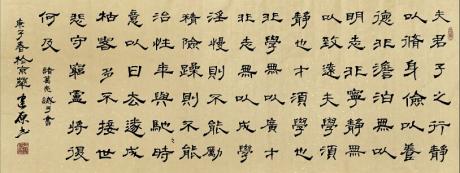 夫君子之行静
以脩身儉以養
德非澹泊無以
明志非寧静無
以致遠夫學須
静也才須學也
非學無以廣才
非志無以成學
淫慢則不能勵
精險躁則不能
治性年與馳時
意與日去遂成
枯落多不接世
悲守窮廬將復
何及
諸葛亮誡子書
庚子春於京華